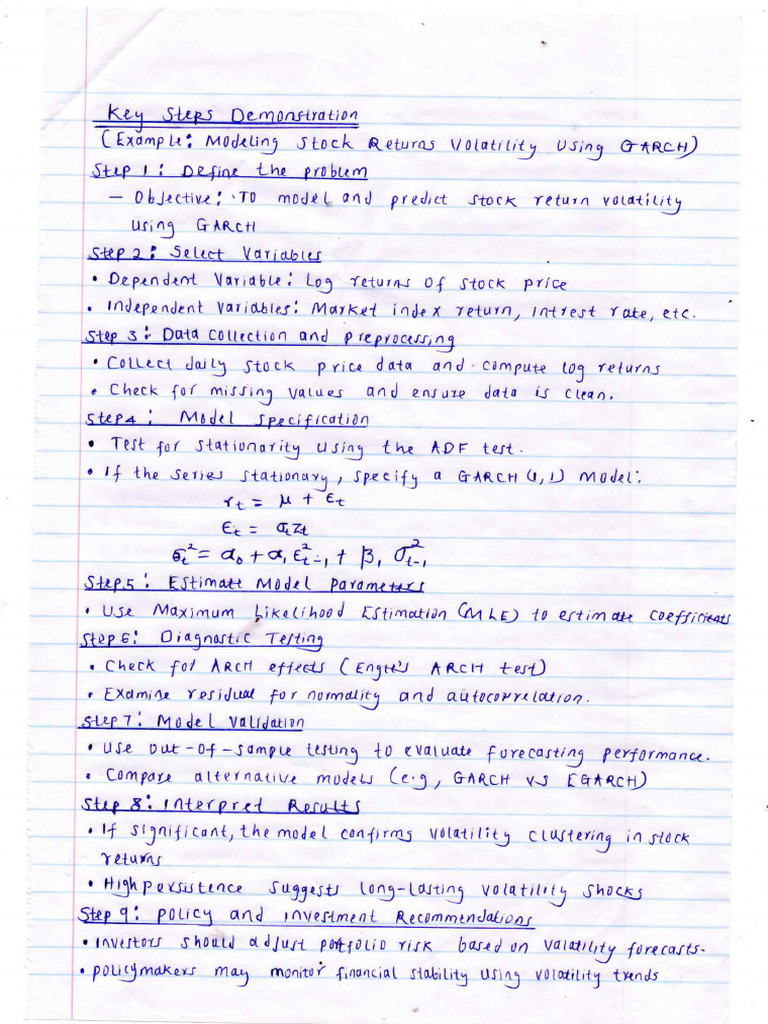 Key Steps Demonstration
(Example: Modeling Stock Returns Volatility Using GARCH)
Step 1: Define the problem
- Objective: To model and predict stock return volatility
using GARCH
Step 2: Select Variables
• Dependent Variable: Log returns of stock price
• Independent variables: Market index return, intrest rate, etc.
Step 3: Data collection and preprocessing
• Collect daily stock price data and compute log returns
• Check for missing values and ensure data is clean.
Step 4: Model specification
• Test for stationarity using the ADF test.
• If the series stationary, specify a GARCH (1,1) Model:
rₜ = μ + εₜ
εₜ = σₜzₜ
σₜ² = α₀ + α₁ε²ₜ₋₁ + β₁ σ²ₜ₋₁
Step 5: Estimate Model Parameters
• Use Maximum Likelihood Estimation (MLE) to estimate coefficients
Step 6: Diagnostic Testing
• Check for ARCH effects (Engle's ARCH test)
• Examine residual for normality and autocorrelation.
Step 7: Model Validation
• Use out-of-sample testing to evaluate forecasting performance.
• Compare alternative models (e.g, GARCH vs EGARCH)
Step 8: Interpret Results
• If significant, the model confirms volatility clustering in stock
returns
• High persistence suggests long-lasting volatility shocks
Step 9: Policy and Investment Recommendations
• Investors should adjust portfolio risk based on valatility forecasts.
• policymakers may monitor financial stability using volatility trends